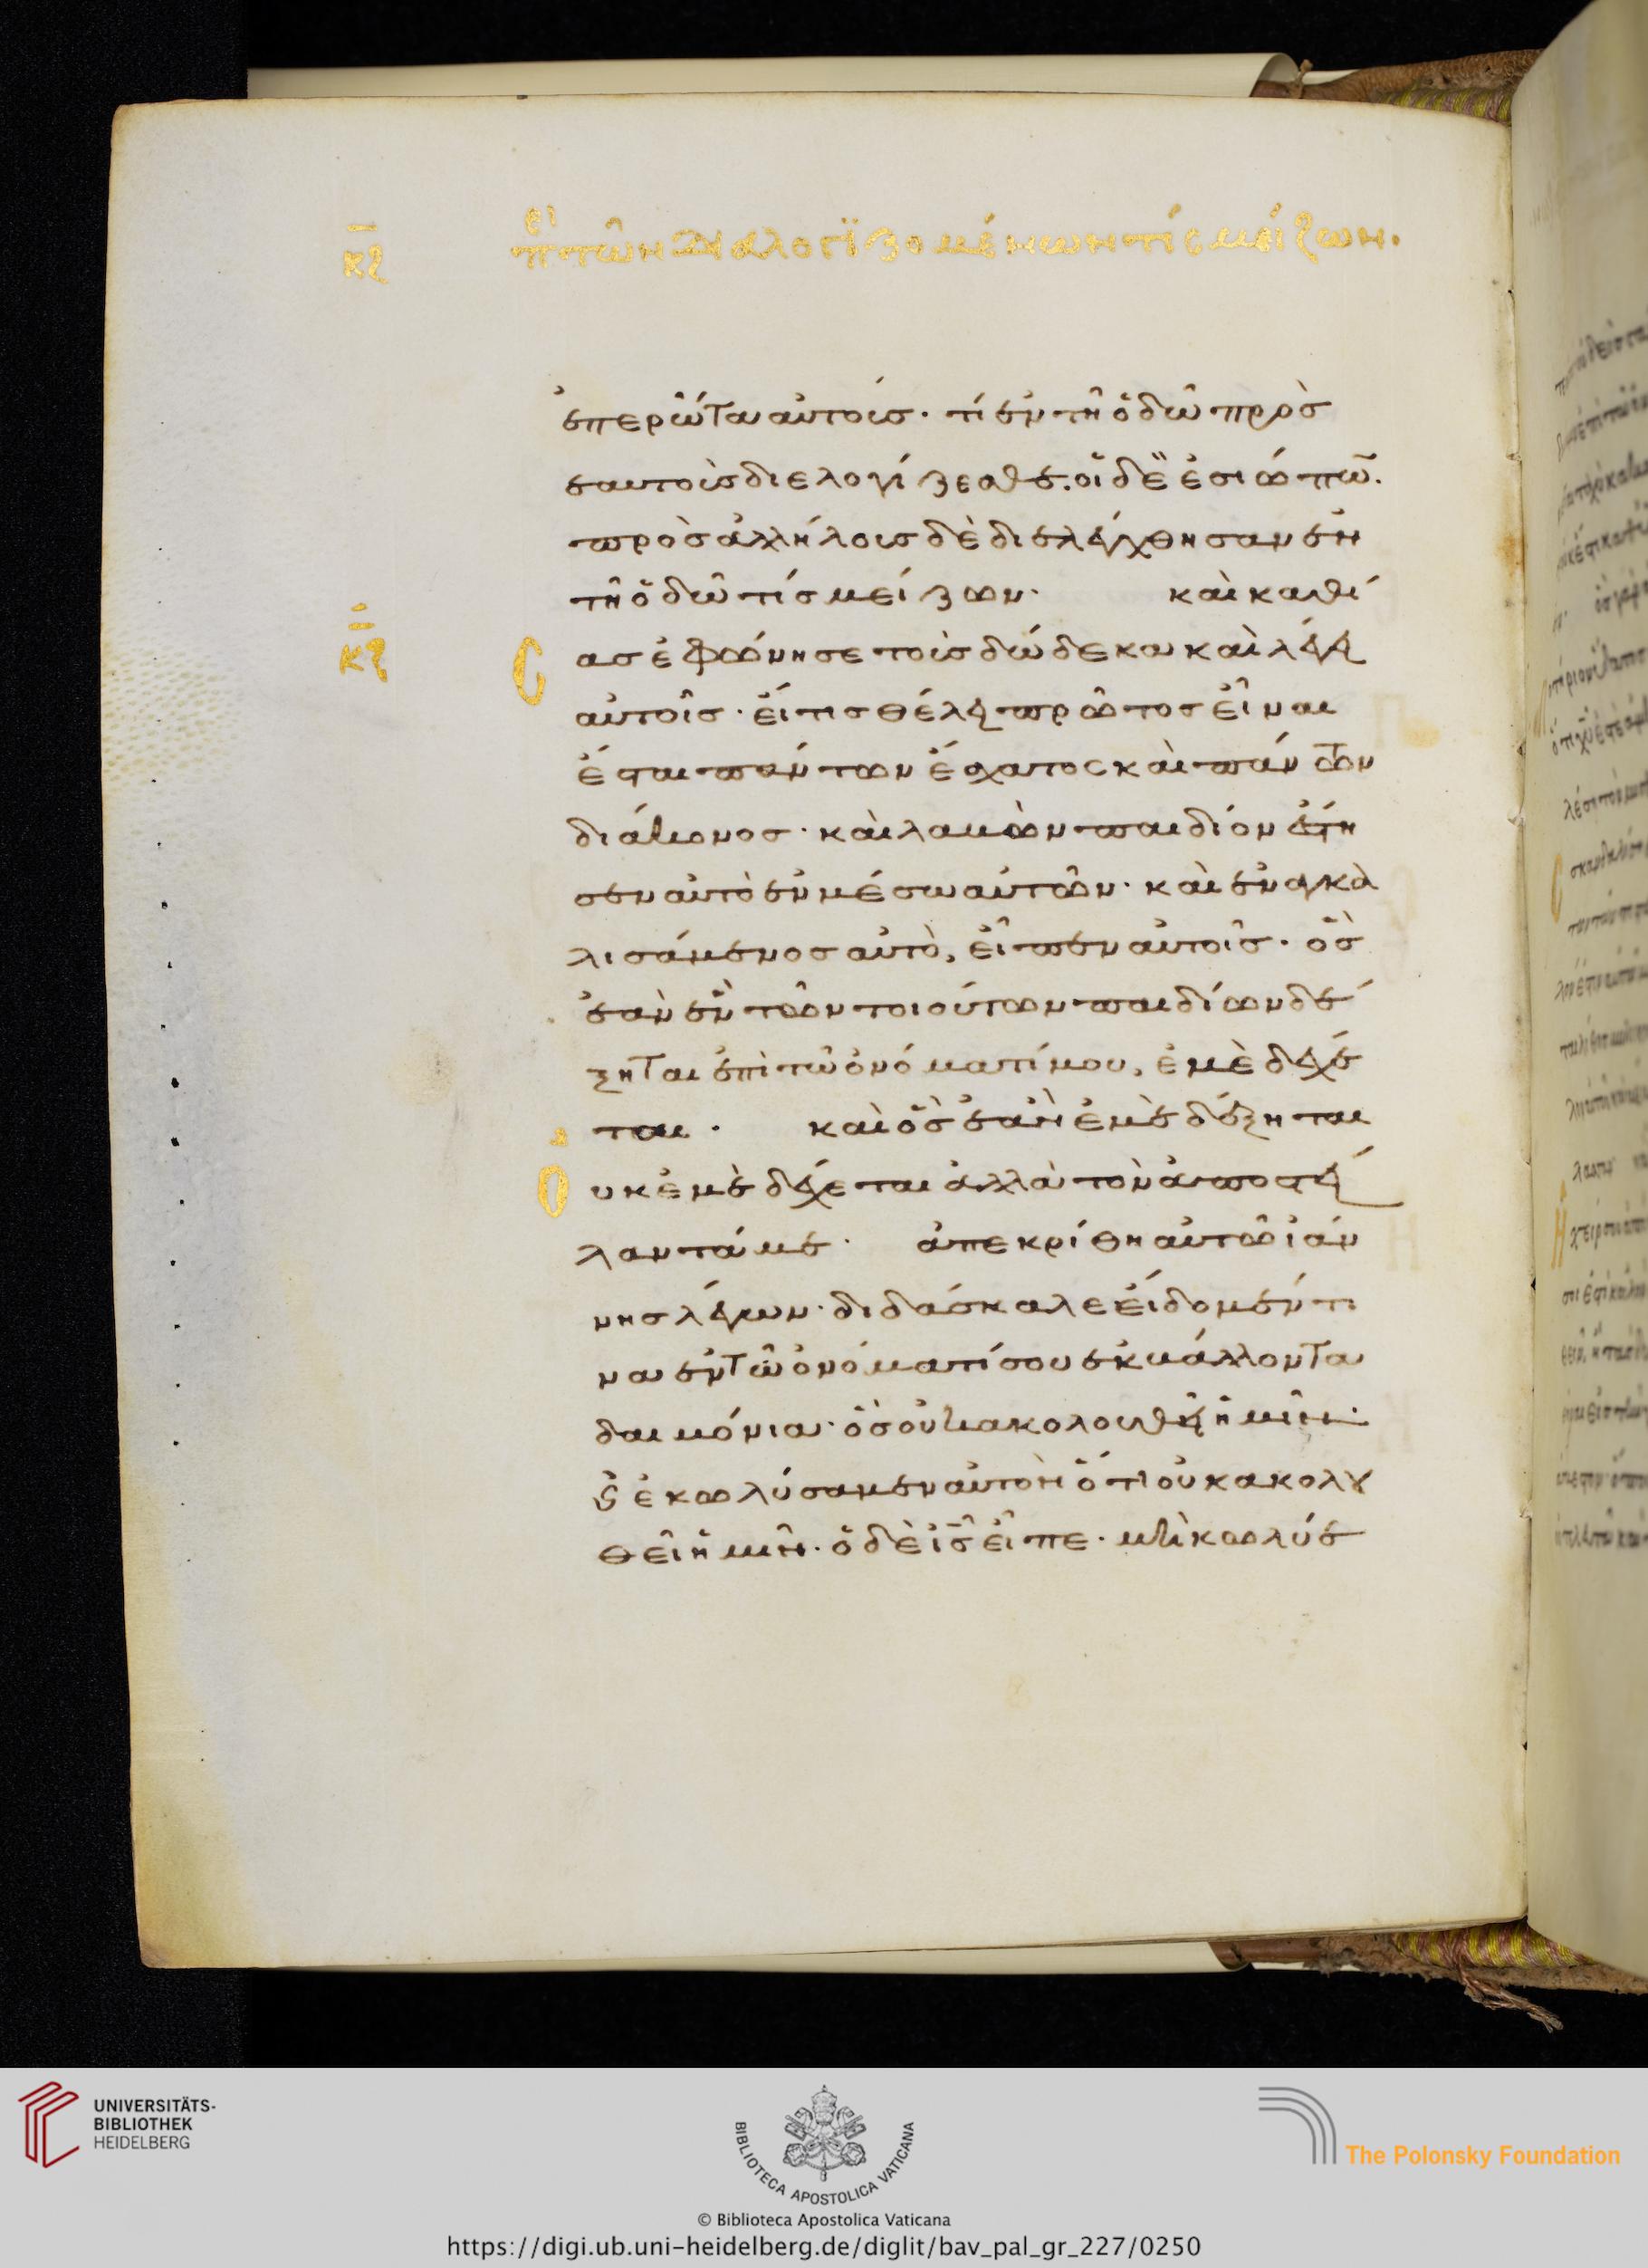 κζ
περὶ τῶν διαλογϊζομένων τίς μείζων.
ἐπερώτα αὐτούς· τί ἐν τῇ ὁδῶ πρὸς
ἑαυτοὺς διελογίζεσθε. οἱ δὲ ἐσιώπων.
πρὸς ἀλλήλους δὲ διελέχθησαν ἐν
τῇ ὁδῶ τίς μείζων· καὶ καθί
κζ
σας ἐφώνησε τοὺς δώδεκα καὶ λέγει
αὐτοῖς· εἴ τις θέλει πρῶτος εἶναι
ἔσται πάντων ἔσχατος καὶ πάντων
διάκονος· καὶ λαβὼν παιδίον ἔστη
σεν αὐτὸ ἐν μέσω αὐτῶν· καὶ ἐναγκα
λισάμενος αὐτὸ, εἶπεν αὐτοῖς· ὃς
ἐὰν ἓν τῶν τοιούτων παιδίων δέ
ξηται ἐπὶ τῶ ὀνόματί μου, ἐμὲ δέχε
ται· καὶ ὃς ἐὰν ἐμὲ δέξηται
οὐκ ἐμὲ δέχεται ἀλλὰ τὸν ἀποστεί
λαντά με· ἀπεκρίθη αὐτῶ ἰωάν
νης λέγων· διδάσκαλε εἴδομέν τι
να ἐν τῶ ὀνόματί σου ἐκβάλλοντα
δαιμόνια· ὃς οὐκ ἀκολουθεῖ ἡμῖν·
καὶ ἐκωλύσαμεν αὐτὸν ὅτι οὐκ ἀκολου
θεῖ ἡμῖν· ὁ δὲ ις εἶπε· μὴ κωλύε
UNIVERSITÄTS-
BIBLIOTHEK
HEIDELBERG
BIBLIOTECA APOSTOLICA VATICANA
The Polonsky Foundation
© Biblioteca Apostolica Vaticana
https://digi.ub.uni-heidelberg.de/diglit/bav_pal_gr_227/0250